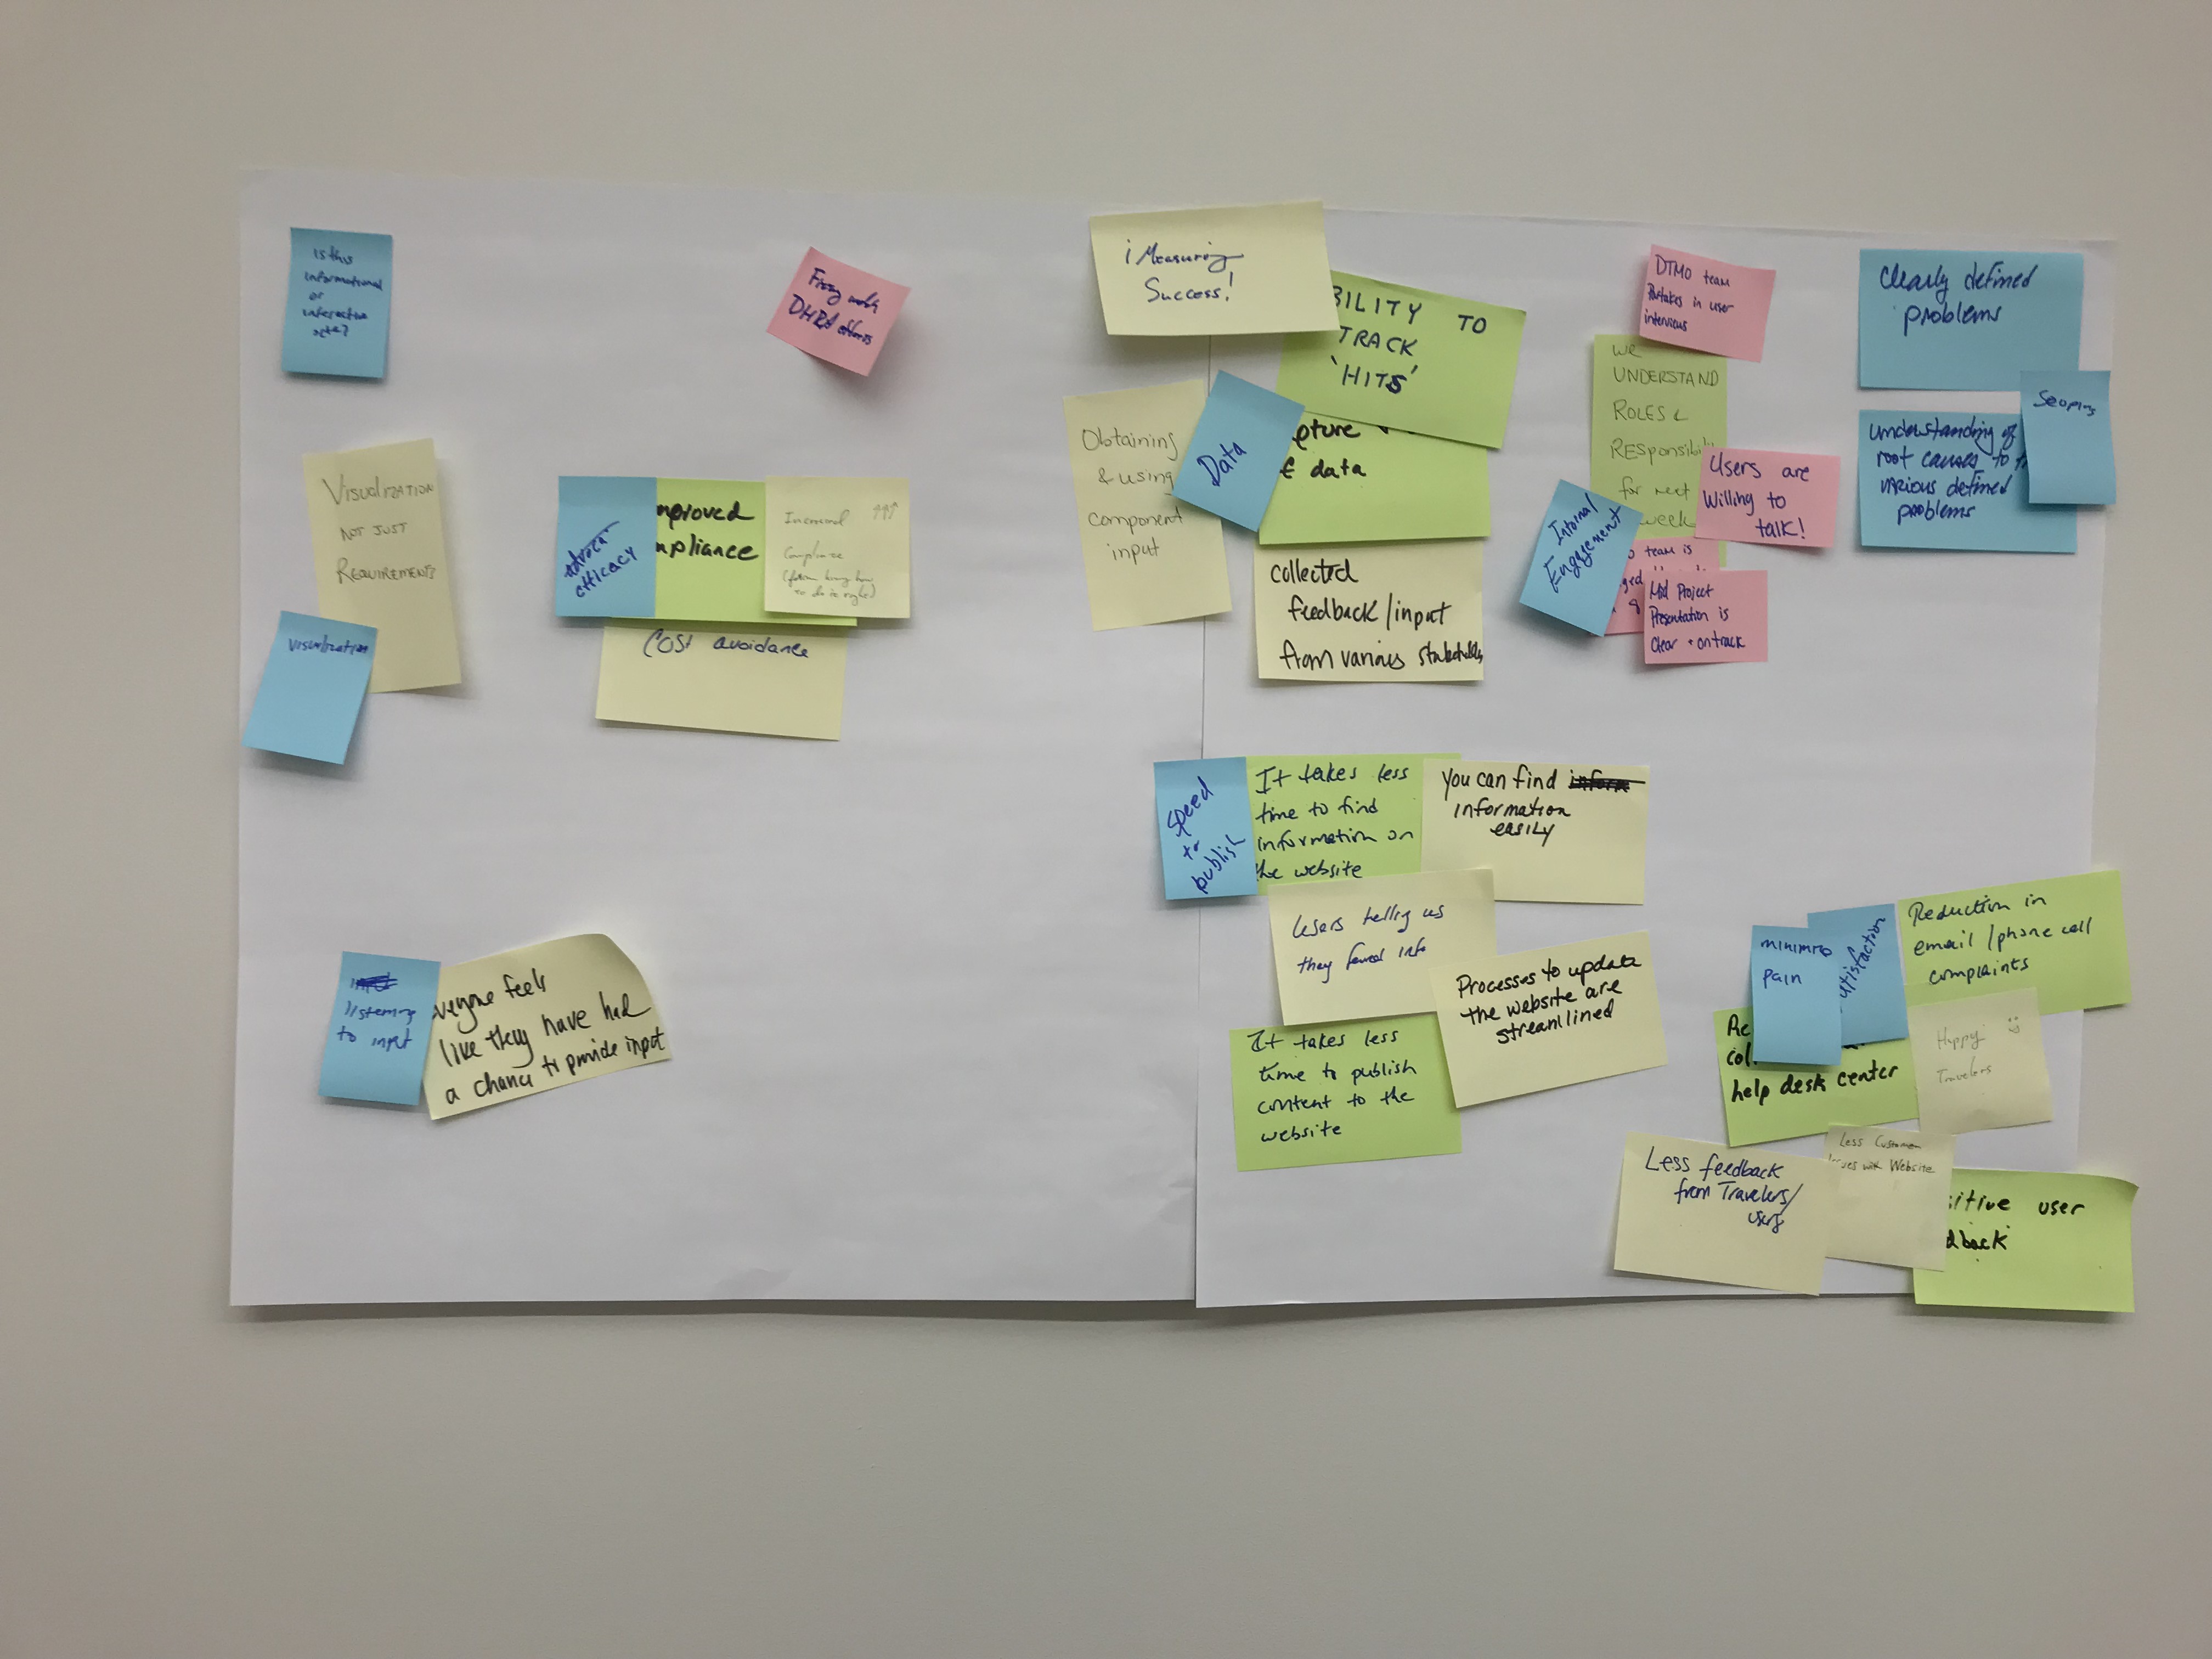 Is this
informational
or
interactive
site?
Visualization
not just
Requirements
visualization
listening
to input
veryone feels
like they have had
a chance to provide input
DHRA efforts
efficacy
mproved
mpliance
Increased ↑↑↑
Compliance
to do it right)
Cost avoidance
¡ Measuring
Success!
BILITY TO
TRACK
'HITS'
Obtaining
& using
component
input
Data
pture
data
collected
feedback/input
from various stakeholders
DTMO team
Partakes in user
interviews
we
UNDERSTAND
ROLES &
RESPONSIBILI
for next
week
Users are
Willing to
talk!
Internal
Engagement
team is
Mid Project
Presentation is
Clear + on track
Clearly defined
problems
Scoping
understanding of
root causes to
various defined
problems
Speed
to
publish
It takes less
time to find
information on
the website
You can find
information
easily
Users telling us
they found info
Processes to update
the website are
streamlined
It takes less
time to publish
content to the
website
minimize
pain
atisfaction
Reduction in
email/phone call
complaints
Re
help desk center
Happy
Travelers
Less feedback
from Travelers/
users
Less Customer
Issues with Website
sitive user
dback